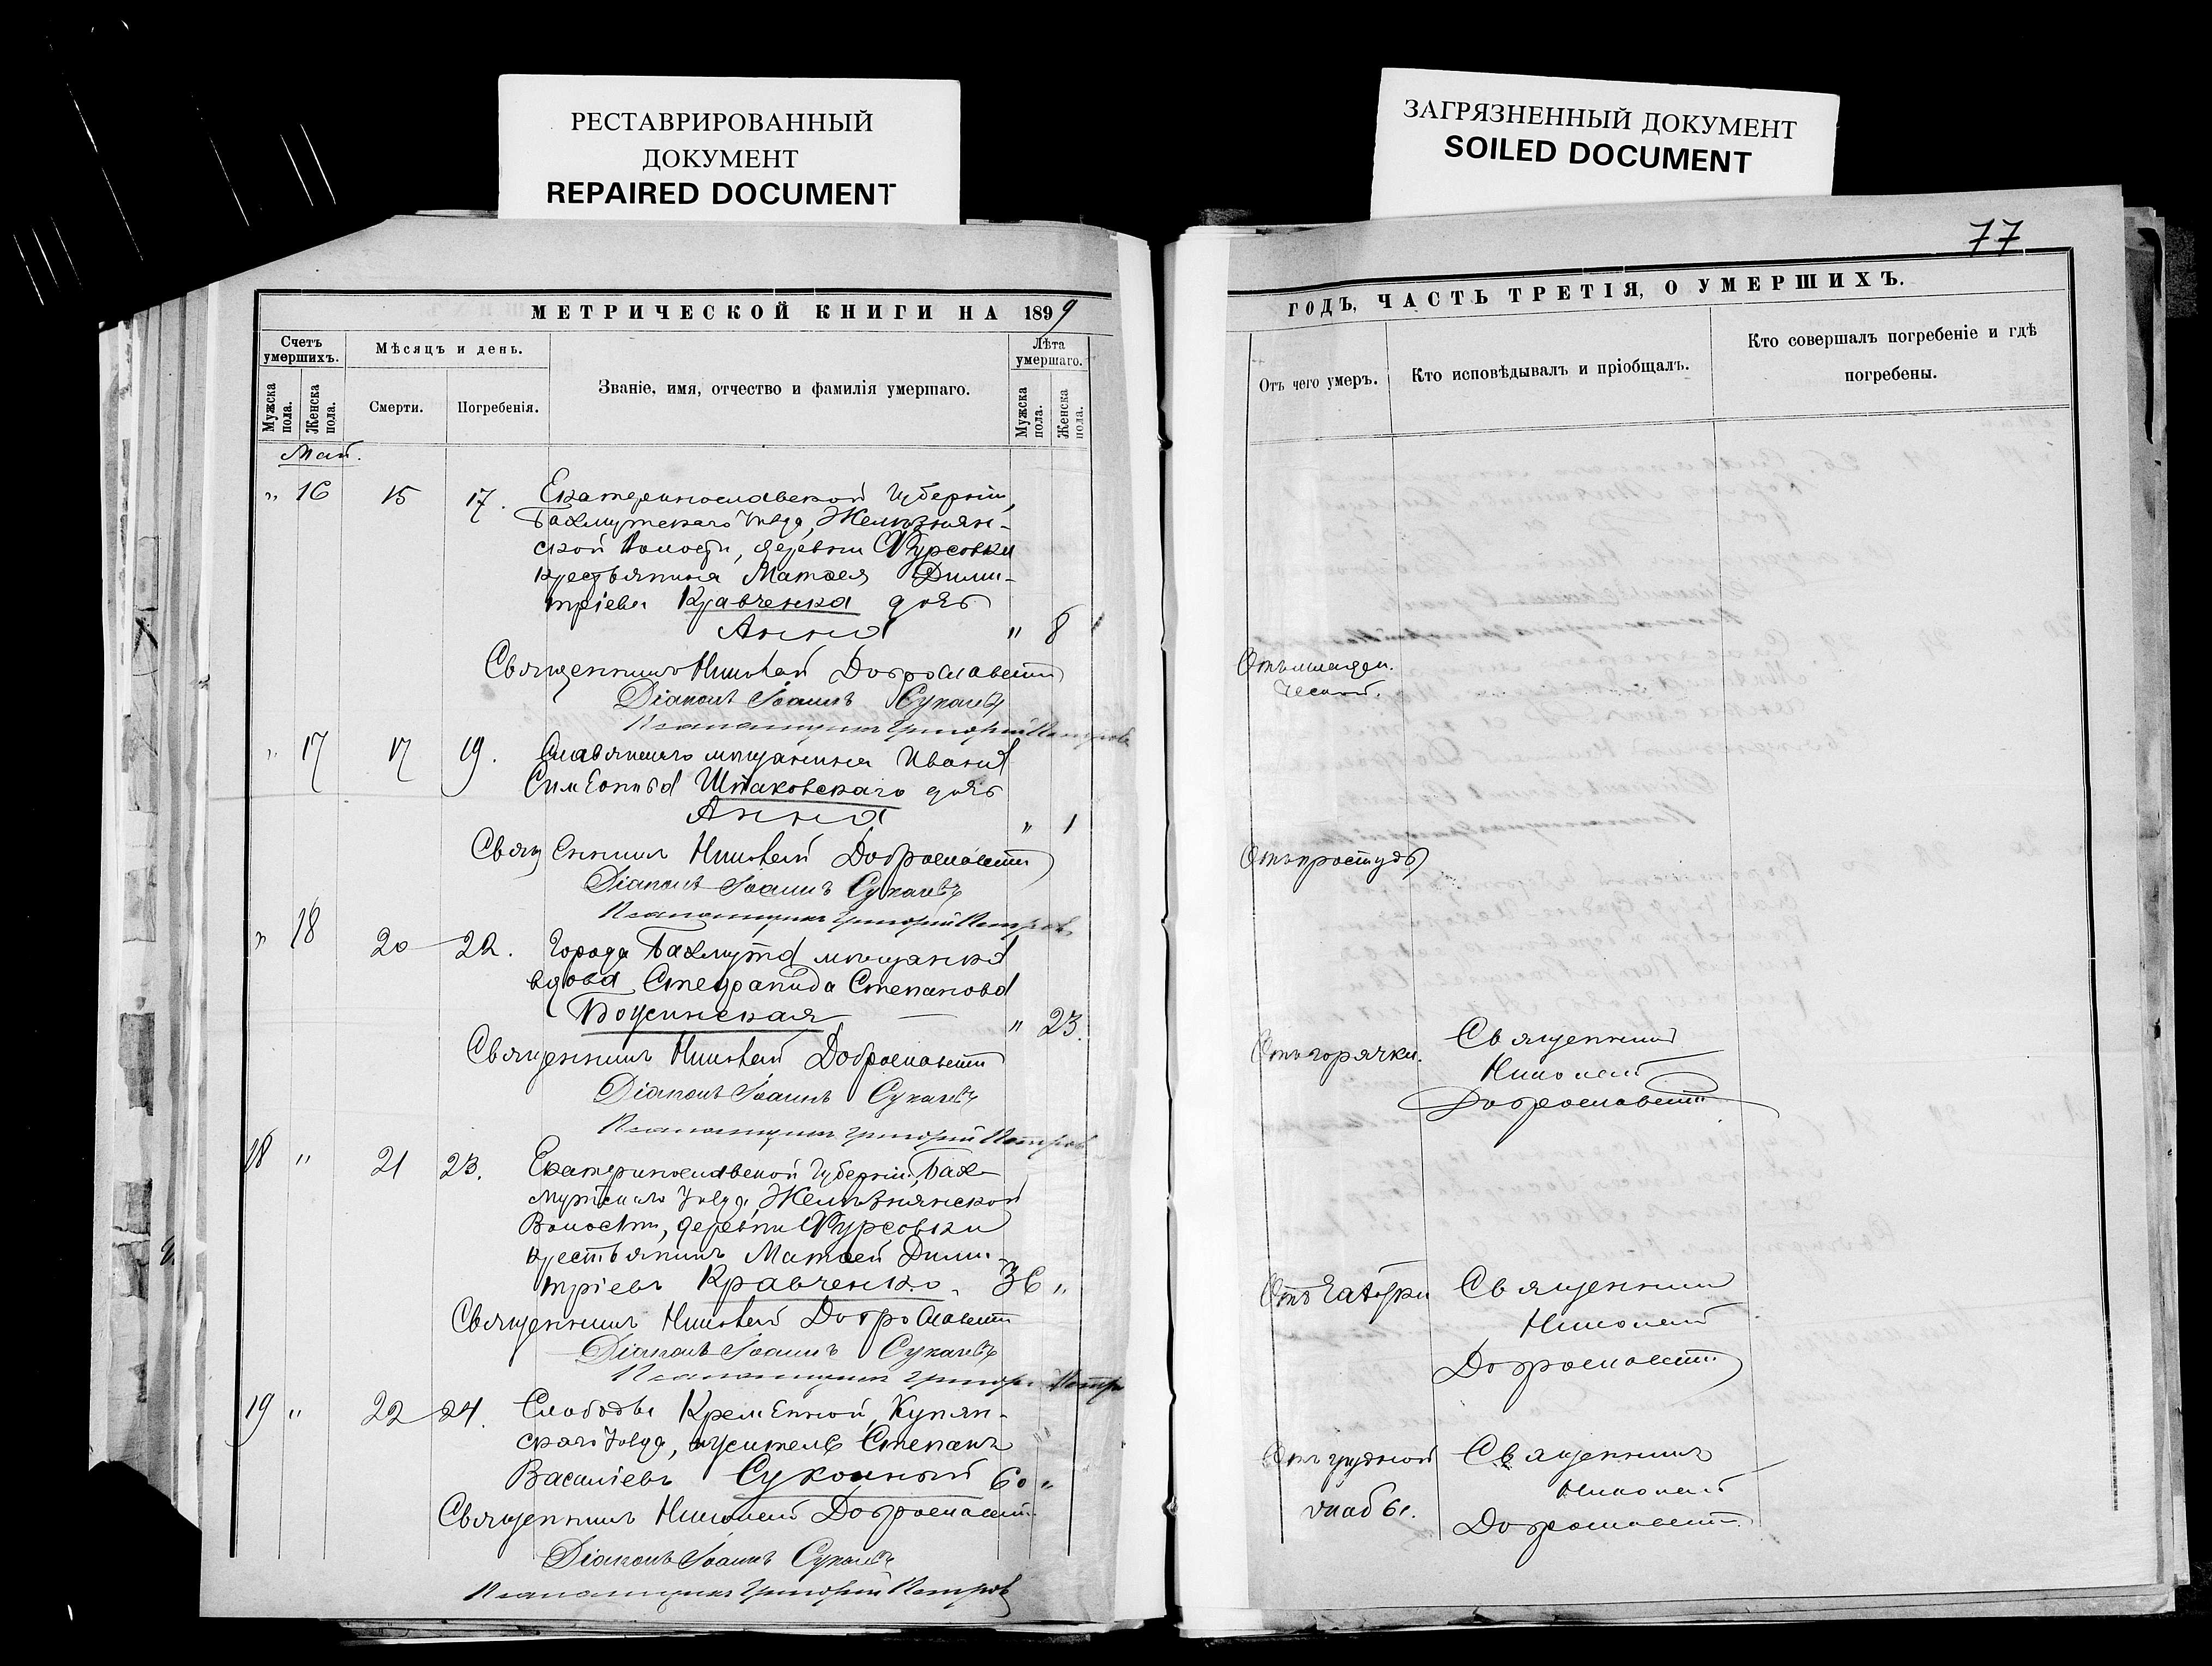 РЕСТАВРИРОВАННЫЙ
ДОКУМЕНТ
REPAIRED DOCUMENT
ЗАГРЯЗНЕННЫЙ ДОКУМЕНТ
SOILED DOCUMENT
77
МЕТРИЧЕСКОЙ КНИГИ НА 1899
Счетъ умершихъ.
Мужска пола.
Женска пола.
Мѣсяцъ и день.
Смерти.
Погребенія.
Званіе, имя, отчество и фамилія умершаго.
Лѣта умершаго.
Мужска пола.
Женска пола.
ГОДЪ, ЧАСТЬ ТРЕТІЯ, О УМЕРШИХЪ.
Отъ чего умеръ.
Кто исповѣдывалъ и пріобщалъ.
Кто совершалъ погребеніе и гдѣ
погребены.
Май.
" 16 15 17. Екатеринославской Губерніи,
Бахмутскаго Уѣзда, Желѣзнян-
ской Волости, деревни Фурсовки
крестьянина Матѳея Дими-
тріева Кравченка дочь
Анна " 8
Священникъ Николай Доброславскій
Діаконъ Іоаннъ Сукачевъ
Псаломщикъ Григорій Петровъ
" 17 17 19. Славянскаго мѣщанина Ивана
Симеонова Шпаковскаго дочь
Анна " 1
Отъ простуды
Священникъ Николай Доброславскій
Діаконъ Іоаннъ Сукачевъ
Псаломщикъ Григорій Петровъ
" 18 20 22. Города Бахмута мѣщанка
вдова Степанида Степанова
" 23.
Отъ горячки. Священникъ
Николай
Доброславскій
Священникъ Николай Доброславскій
Діаконъ Іоаннъ Сукачевъ
Псаломщикъ Григорій Петровъ
18 " 21 23. Екатеринославской Губерніи, Бах-
мутскаго Уѣзда, Желѣзнянской
Волости, деревни Фурсовки
крестьянинъ Матѳей Дими-
тріевъ Кравченко. 36 "
Священникъ
Николай
Доброславскій
Священникъ Николай Доброславскій
Діаконъ Іоаннъ Сукачевъ
Псаломщикъ Григорій Петр
19 " 22 24. Слободы Кременной, Купян-
скаго Уѣзда, учитель Степанъ
Василіевъ Суконный 60 "
Отъ грудной Священникъ
Николай
Доброславскій
Священникъ Николай Доброславскій
Діаконъ Іоаннъ Сукачевъ
Псаломщикъ Григорій Петровъ